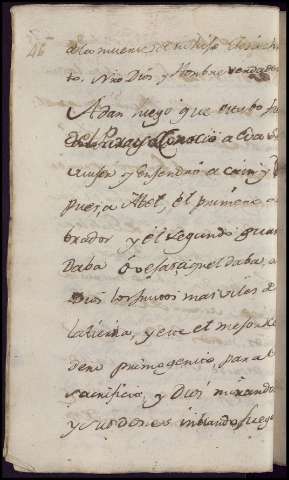 46
a la muerte de su hijo Jesuchris
to. Nro Dios y Hombre verdadero
Adan luego que estubo fue
del Parayso Conocio a Eva su
muger y engendró a Cain y des
pues a Abel, el primero era la
brador y el segundo guar
daba ovejas aquel daba, a
Dios los frutos mas viles de
la tierra, y este el mejor cor
dero primogenito, para el
sacrificio, y Dios mirando
y su dones inbiando fuego